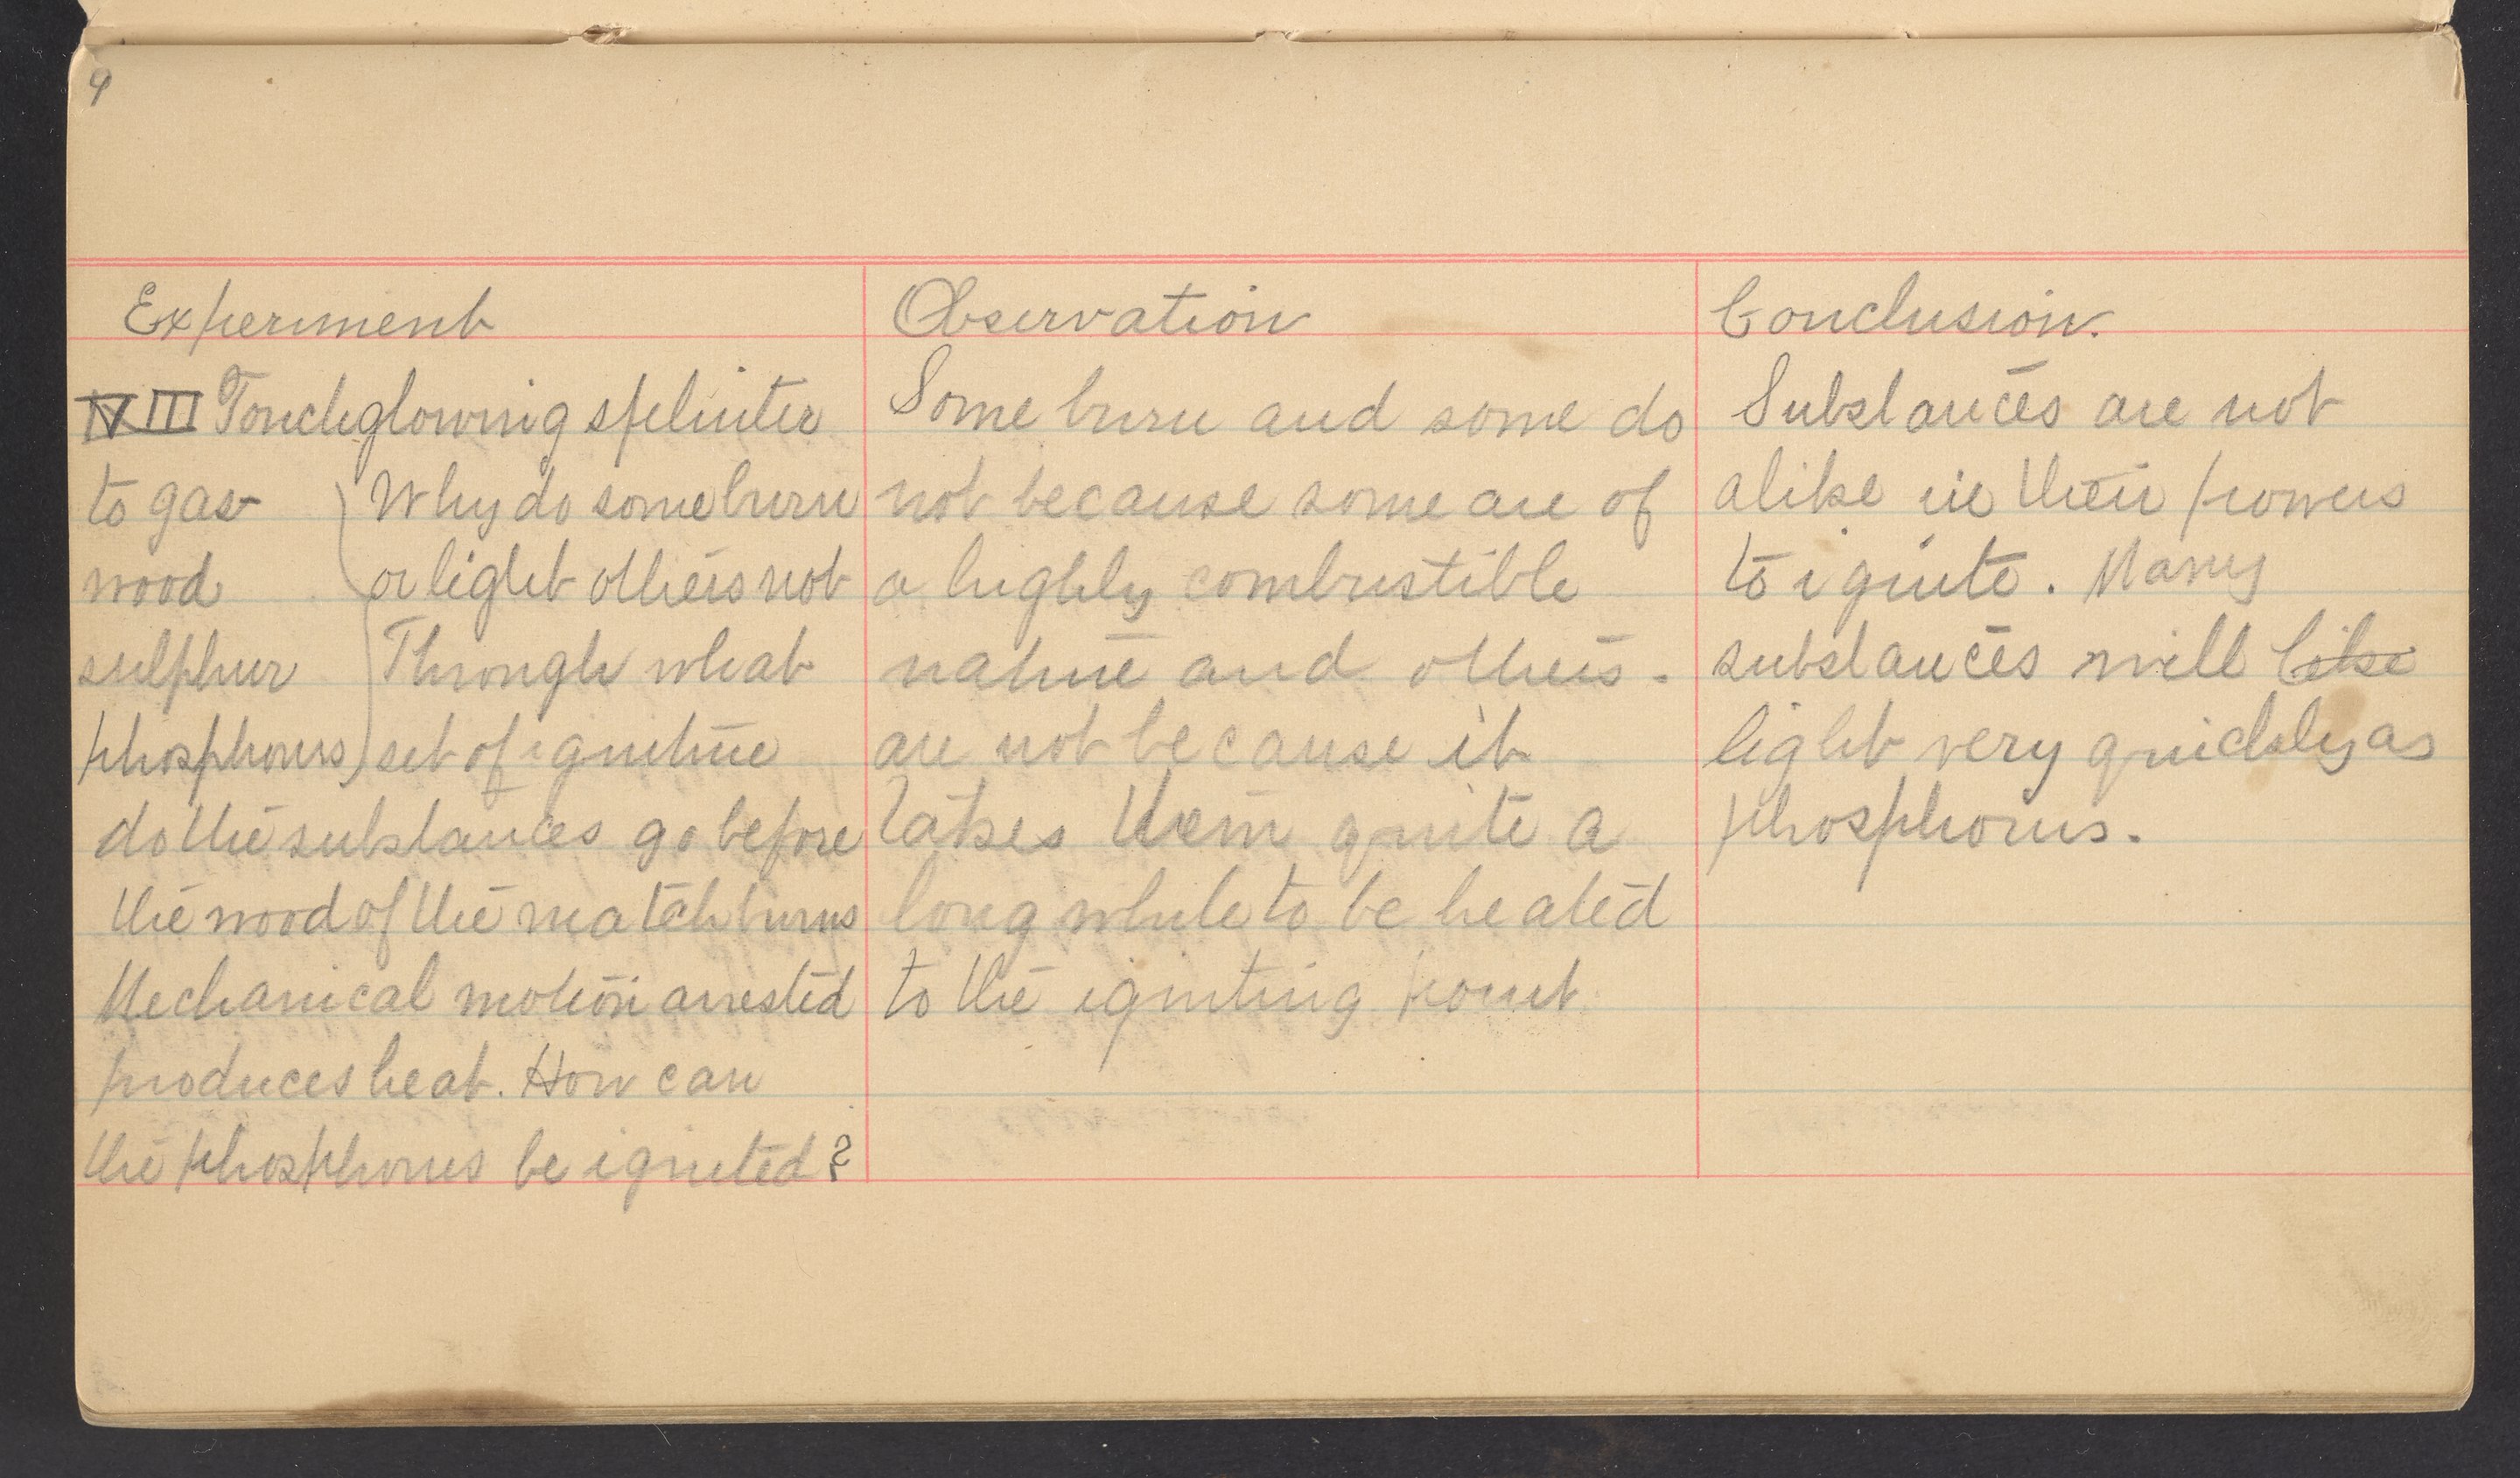 9
Experiment
III Touch glowing splinter
to gas
wood
sulphur
phosphorus
Why do some burn
or light others not
Through what
set of igniture
do the substances go before
the wood of the match burns
Mechanical motion arrested
produces heat. How can
the phosphorus be ignited?
Observation
Some burn and some do
not because some are of
a highly combustible
nature and others.
are not because it
takes them quite a
long while to be heated
to the igniting point
Conclusion.
Substances are not
alike in their powers
to ignite. Many
substances will like
light very quickly as
phosphorus.